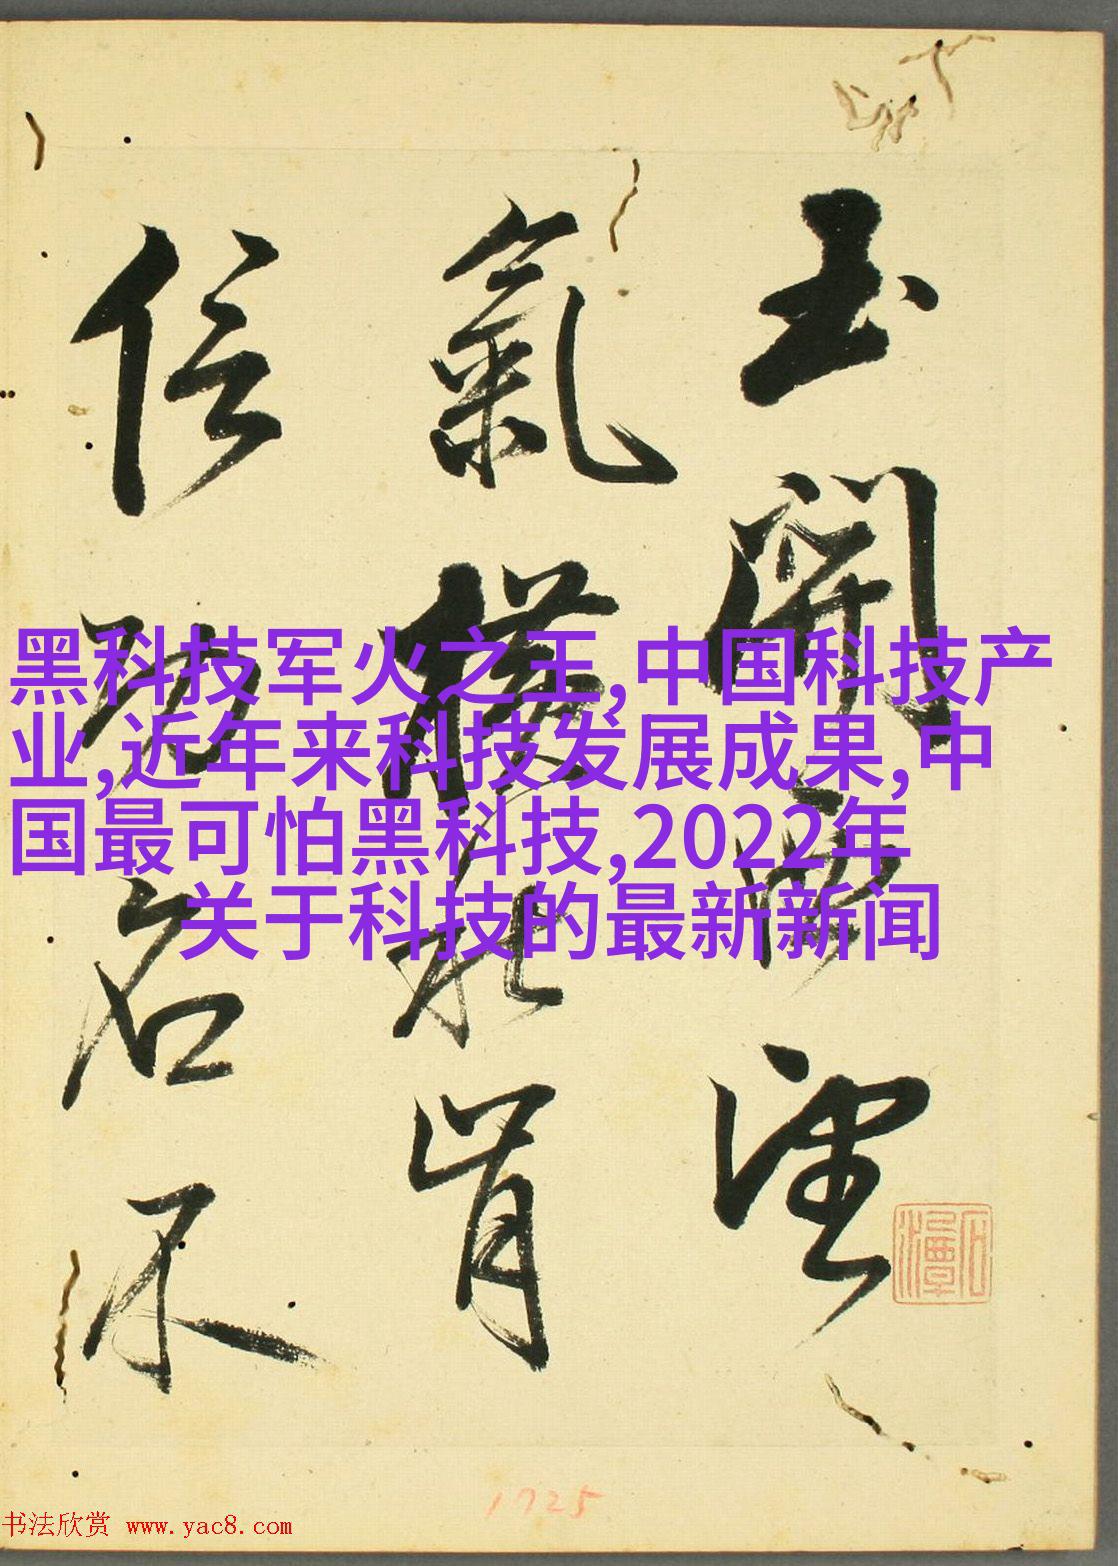 玉關西望
氣橫秋肯
信功名不
黑科技军火之王,中国科技产
业,近年来科技发展成果,中
国最可怕黑科技,2022年
关于科技的最新新闻
石潭
1725
书法欣赏 www.yac8.com